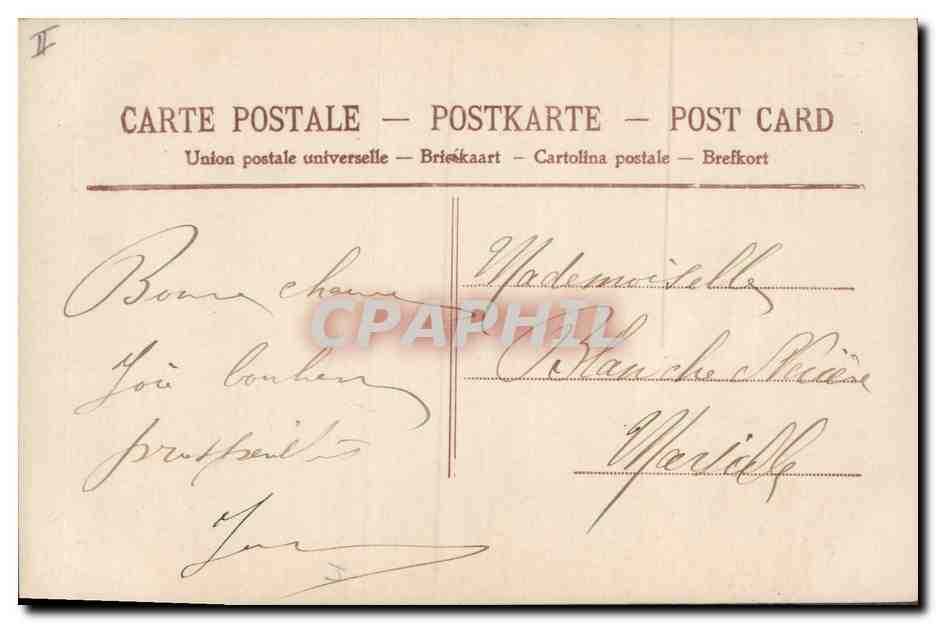 II
CARTE POSTALE — POSTKARTE — POST CARD
Union postale universelle — Briefkaart - Cartolina postale — Brefkort
Bonne chance
Joie bonheur
prospérité
Mademoiselle
Blanche
Marseille
CPAPHIL